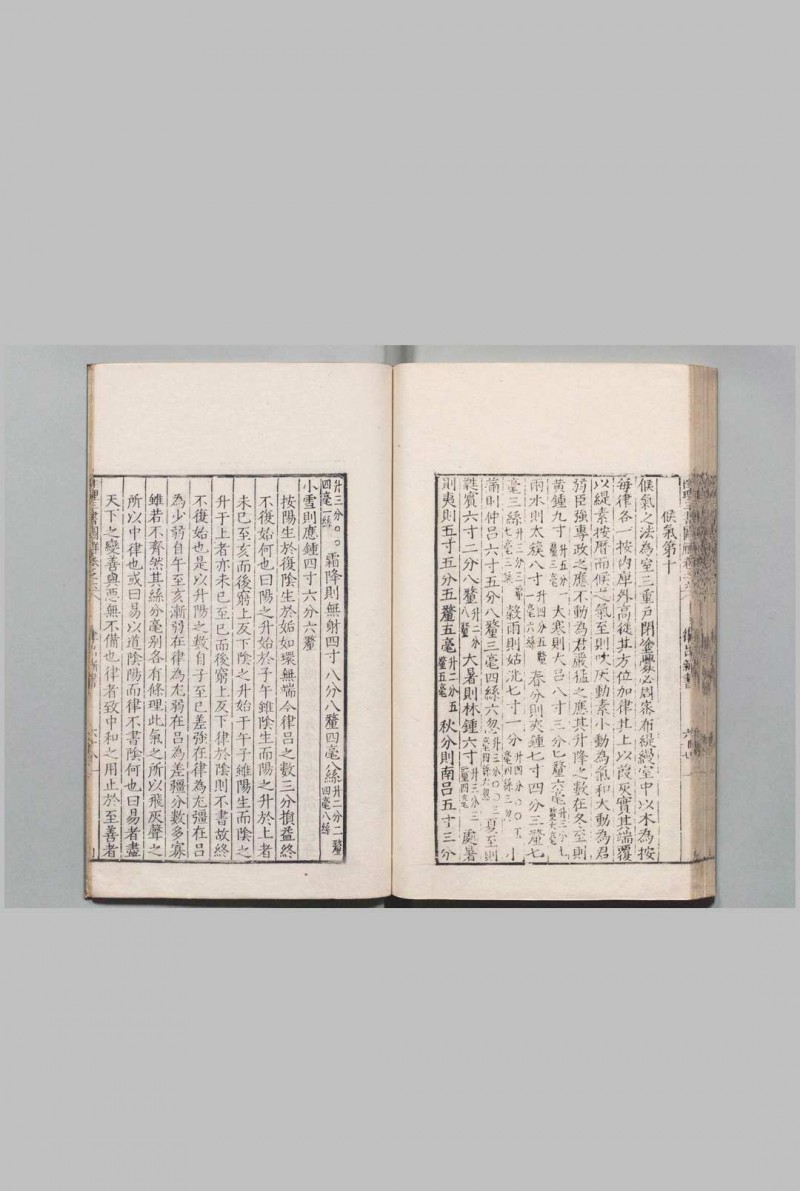 候氣第十
候氣之法為室三重戸閉塗釁必周宻布緹縵室中以木為按
每律各一按内庳外高從其方位加律其上以葭灰實其端覆
以緹素按曆而候之氣至則吹灰動素小動為氣和大動為君
弱臣強專政之應不動為君嚴猛之應其升降之數在冬至則
黄鍾九寸升五分一釐三毫大寒則大吕八寸三分七釐六毫
雨水則太簇八寸升四分五釐一毫六絲春分則夾鍾七寸四分三釐七
毫三絲穀雨則姑洗七寸一分小
滿則仲吕六寸五分八釐三毫四絲六忽夏至則
蕤賓六寸二分八釐升二分八釐大暑則林鍾六寸處暑
則夷則五寸五分五釐五毫升二分五釐五毫秋分則南吕五寸三分
升三分〇〇四毫一絲霜降則無射四寸八分八釐四毫八絲升二分二釐四毫八絲
小雪則應鍾四寸六分六釐
按陽生於復陰生於姤如環無端今律吕之數三分損益終
不復始何也曰陽之升始於子午雖陰生而陽之升於上者
未已至亥而後窮上反下陰之升始于午子雖陽生而陰之
升于上者亦未已至巳而後窮上反下律於陰則不書故終
不復始也是以升陽之數自子至巳差強在律為尤彊在吕
為少弱自午至亥漸弱在律為尤弱在吕為差彊分數多寡
雖若不齊然其絲分毫别各有條理此氣之所以飛灰聲之
所以中律也或曰易以道陰陽而律不書陰何也曰易者盡
天下之變善與惡無不備也律者致中和之用止於至善者